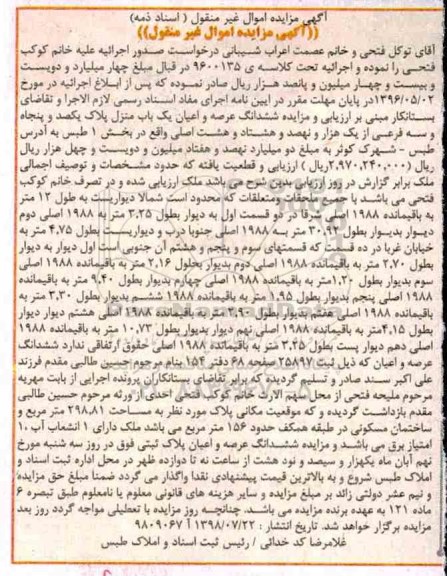 آگهی مزایده اموال غیر منقول ( اسناد ذمه)
((آگهی مزایده اموال غیر منقول))
آقای توکل فتحی و خانم عصمت اعراب شیبانی درخواست صدور اجرائیه علیه خانم کوکب
فتحی را نموده و اجرائیه تحت کلاسه ی ۹۶۰۰۱۳۵ در قبال مبلغ چهار میلیارد و دویست
و بیست و چهار میلیون و پانصد هزار ریال صادر نموده که پس از ابلاغ اجرائیه در مورخ
۱۳۹۶/۰۵/۰۲در پایان مهلت مقرر در آیین نامه اجرای مفاد اسناد رسمی لازم الاجرا و تقاضای
بستانکار مبنی بر ارزیابی و مزایده ششدانگ عرصه و اعیان یک باب منزل پلاک یکصد و پنجاه
و سه فرعی از یک هزار و نهصد و هشتاد و هشت اصلی واقع در بخش ۱ طبس به آدرس
طبس - شهرک کوثر به مبلغ دو میلیارد نهصد و هفتاد میلیون و دویست و چهل هزار ریال
(۲,۹۷۰,۲۴۰,۰۰۰ریال ) ارزیابی و قطعیت یافته که حدود مشخصات و توصیف اجمالی
ملک برابر گزارش در روز ارزیابی بدین شرح می باشد ملک ارزیابی شده و در تصرف خانم کوکب
فتحی می باشد با جمیع ملحقات ومتعلقات که محدود است شمالا دیواریست به طول ۱۲ متر
به باقیمانده ۱۹۸۸ اصلی شرقا در دو قسمت اول به دیوار بطول ۳.۲۵ متر به ۱۹۸۸ اصلی دوم
دیوار بدیوار بطول ۳۰.۹۳ متر به ۱۹۸۸ اصلی جنوبا درب و دیواریست بطول ۴.۷۵ متر به
خیابان غربا در ده قسمت که قسمتهای سوم و پنجم و هشتم آن جنوبی است اول دیوار به دیوار
بطول ۲.۷۰ متر به باقیمانده ۱۹۸۸ اصلی دوم بدیوار بخلول ۲.۱۶ متر به باقیمانده ۱۹۸۸ اصلی
سوم بدیوار بطول ۱.۲۰متر به باقیمانده ۱۹۸۸ اصلی چهارم بدیوار بطول ۹.۴۰ متر به باقیمانده
۱۹۸۸ اصلی پنجم بدیوار بطول ۱.۹۵ متر به باقیمانده ۱۹۸۸ ششم بدیوار بطول ۳.۳۰ متر به
باقیمانده ۱۹۸۸ اصلی هفتم بدیوار بطول ۲.۹۰ متر به باقیمانده ۱۹۸۸ اصلی هشتم دیوار دیوار
بطول ۴.۱۵متر به باقیمانده ۱۹۸۸ اصلی نهم دیوار بدیوار بطول ۱۰.۷۳ متر به باقیمانده ۱۹۸۸
اصلی دهم دیوار پست بطول ۳.۴۵ متر به باقیمانده ۱۹۸۸ اصلی حقوق ارتفاقی ندارد ششدانگ
عرصه و اعیان که ذیل ثبت ۲۵۸۹۷ صفحه ۶۸ دفتر ۱۵۴ بنام مرحوم حسین طالبی مقدم فرزند
علی اکبر سند صادر و تسلیم گردیده که برابر تقاضای بستانکاران پرونده اجرایی از بابت مهریه
مرحوم ملیحه فتحی از محل سهم الارث خانم کوکب فتحی احدی از ورثه مرحوم حسین طالبی
مقدم بازداشت گردیده و که موقعیت مکانی پلاک مورد نظر به مساحت ۲۹۸.۸۱ متر مربع و
ساختمان مسکونی در طبقه همکف حدود ۱۵۶ متر مربع می باشد ملک دارای ۱ انشعاب آب ،۱
امتیاز برق می باشد و مزایده ششدانگ عرصه و اعیان پلاک ثبتی فوق در روز سه شنبه مورخ
نهم آبان ماه یکهزار و سیصد و نود هشت از ساعت نه تا دوازده ظهر در محل اداره ثبت اسناد و
املاک طبس شروع و به بالاترین قیمت پیشنهادی نقدا واگذار می گردد ضمنا مبلغ حق مزایده
و نیم عشر دولتی زائد بر مبلغ مزایده و سایر هزینه های قانونی معلوم یا نامعلوم طبق تبصره ۶
ماده ۱۲۱ به عهده برنده مزایده می باشد. چنانچه روز مزایده با تعطیلی مواجه گردد روز بعد
مزایده برگزار خواهد شد. تاریخ انتشار : ۱۳۹۸/۰۷/۲۲ آ ۹۸۰۹۰۶۷
غلامرضا کد خدائی / رئیس ثبت اسناد و املاک طبس